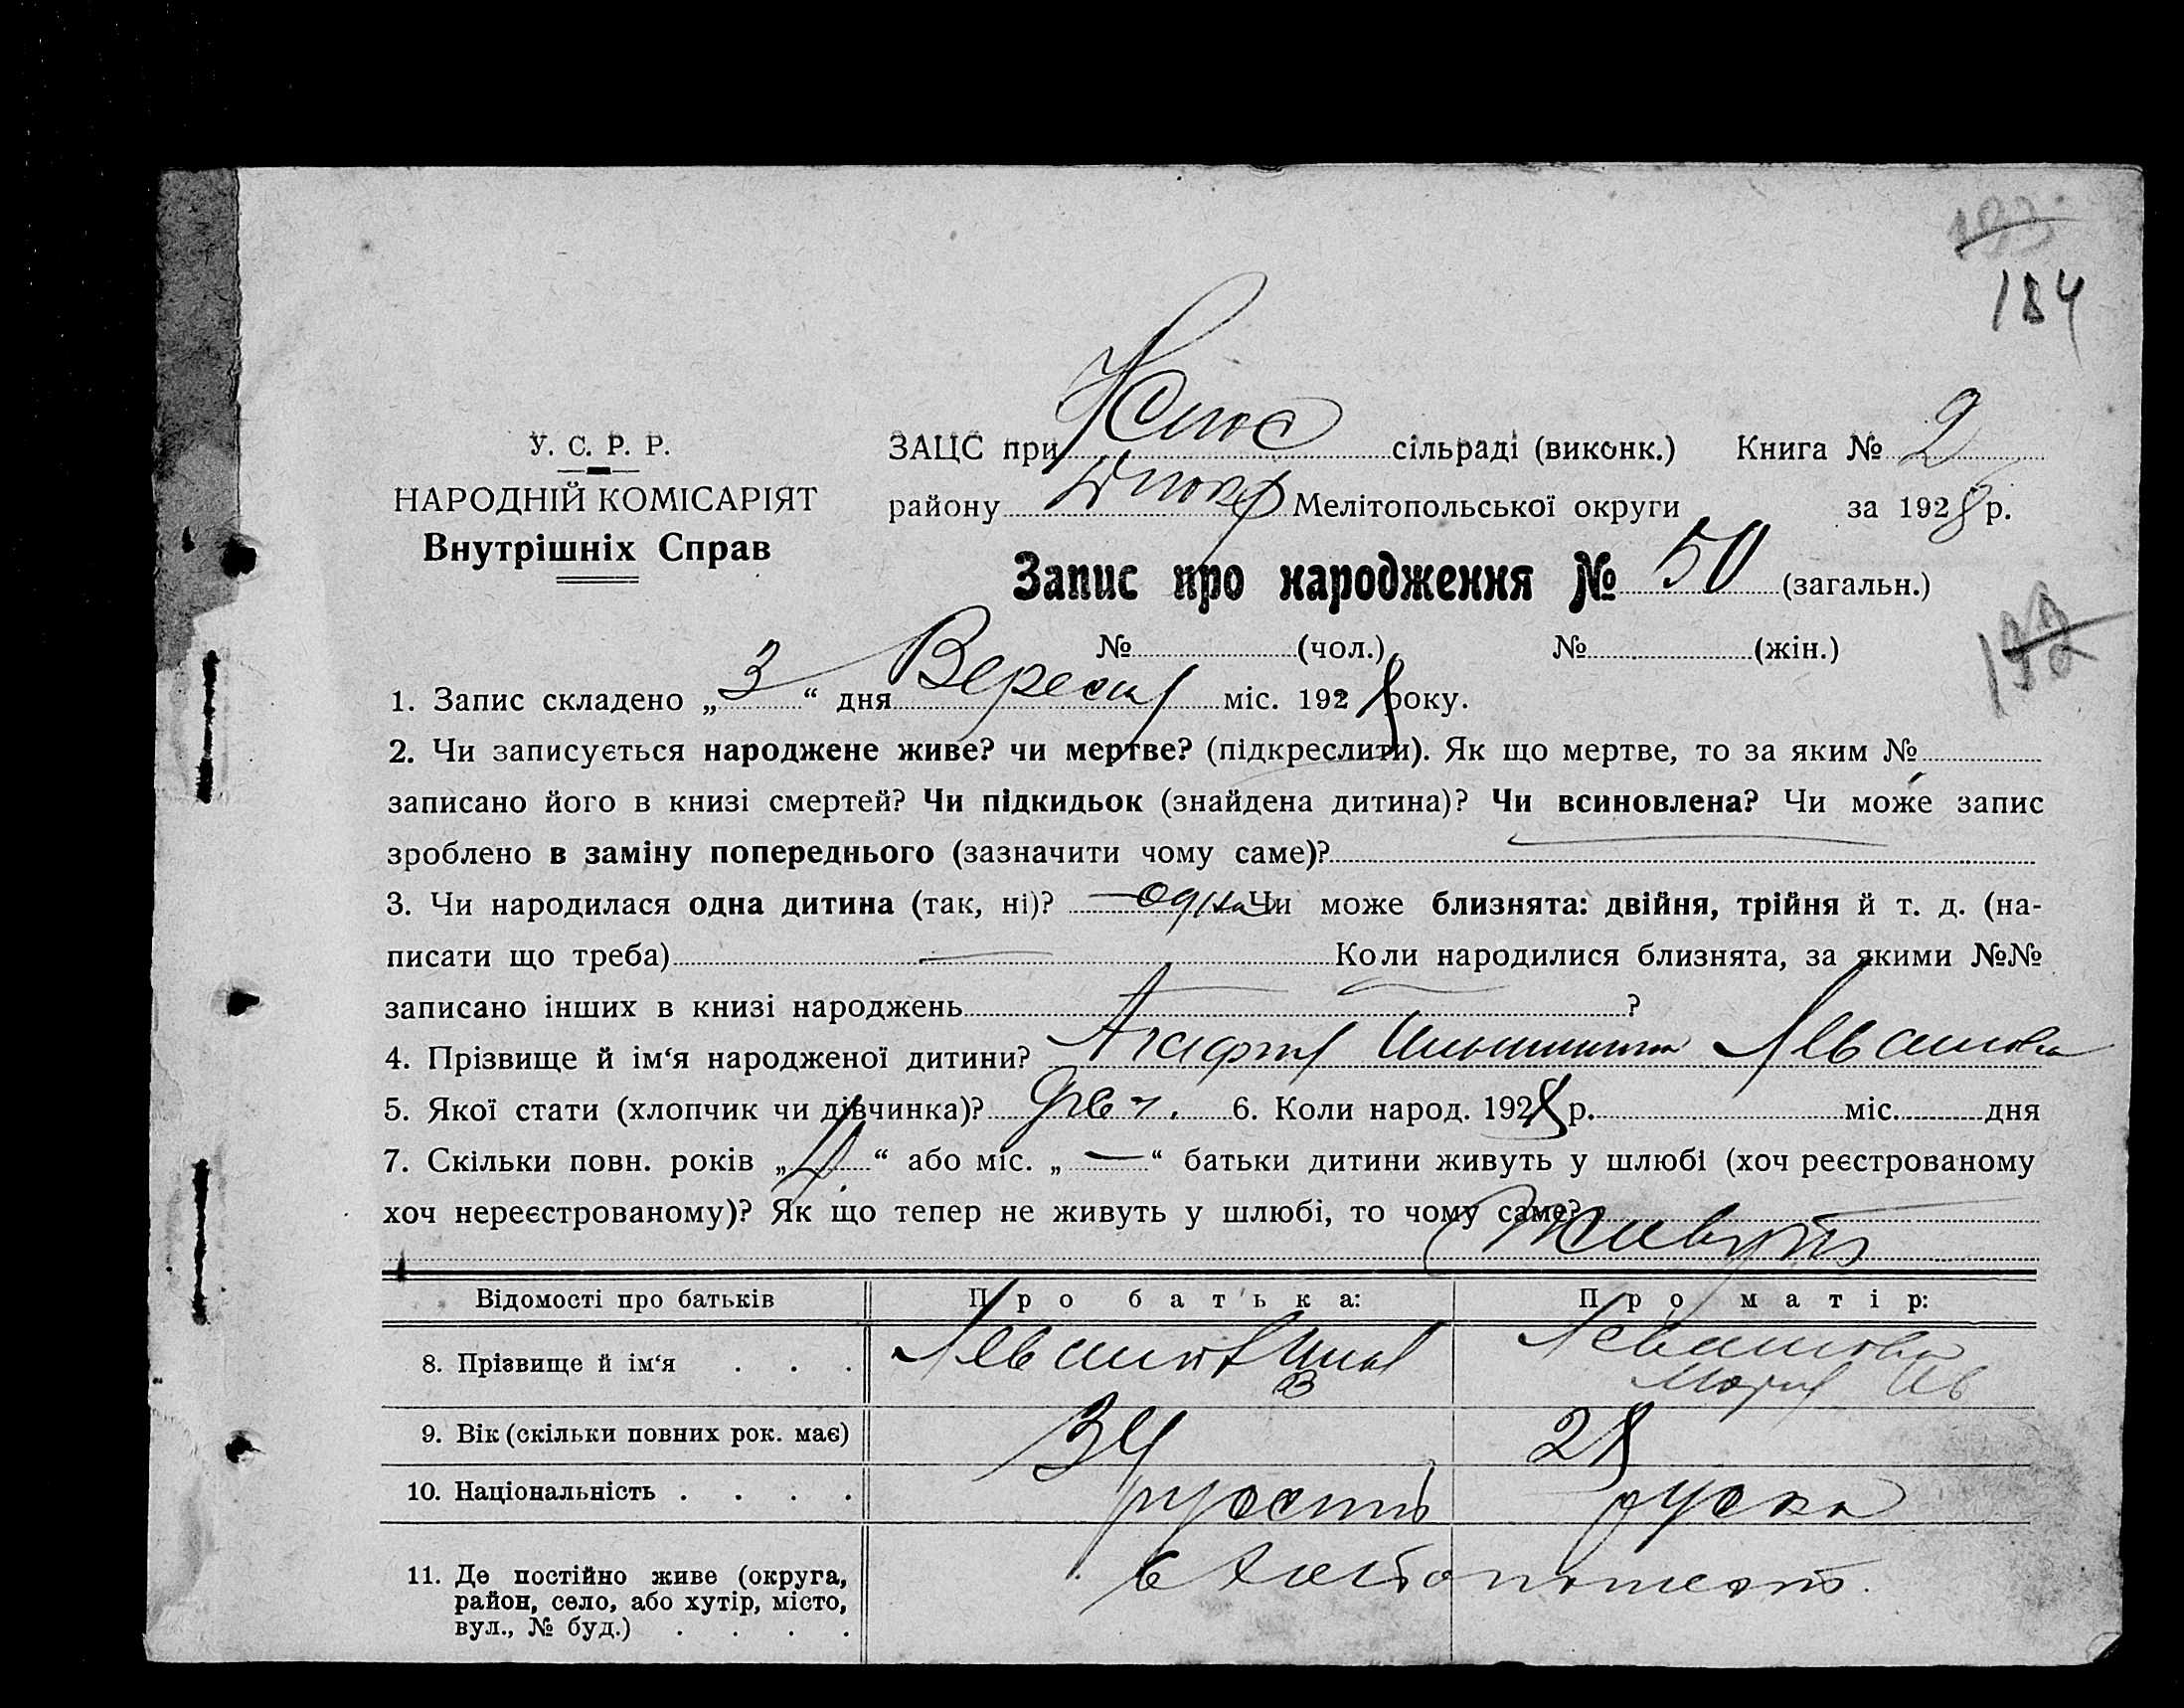 193
184
У. С. Р. Р.
НАРОДНІЙ КОМІСАРІЯТ
Внутрішніх Справ
ЗАЦС при сільраді (виконк.) Книга № 2
району Мелітопольської округи за 1928 р.
Запис про народження № 50 (загальн.)
№ (чол.) № (жін.)
192
1. Запис складено „ 3 “ дня Вересня міс. 1928 року.
2. Чи записується народжене живе? чи мертве? (підкреслити). Як що мертве, то за яким №
записано його в книзі смертей? Чи підкидьок (знайдена дитина)? Чи всиновлена? Чи може запис
зроблено в заміну попереднього (зазначити чому саме)?
3. Чи народилася одна дитина (так, ні)? одна Чи може близнята: двійня, трійня й т. д. (на-
писати що треба) — Коли народилися близнята, за якими №№
записано інших в книзі народжень ?
4. Прізвище й ім‘я народженої дитини? Агафия Левашова
5. Якої стати (хлопчик чи дівчинка)? 6. Коли народ. 1928 р. міс. дня
7. Скільки повн. років „ “ або міс. „ — “ батьки дитини живуть у шлюбі (хоч реєстрованому
хоч нереєстрованому)? Як що тепер не живуть у шлюбі, то чому саме?
Живуть
Відомості про батьків Про батька: Про матір:
8. Прізвище й ім‘я . . . Левашов Левашова
Мария Ив
9. Вік (скільки повних рок. має) 34 28
10. Національність . . . . руска
11. Де постійно живе (округа,
район, село, або хутір, місто,
вул., № буд.) . . . .